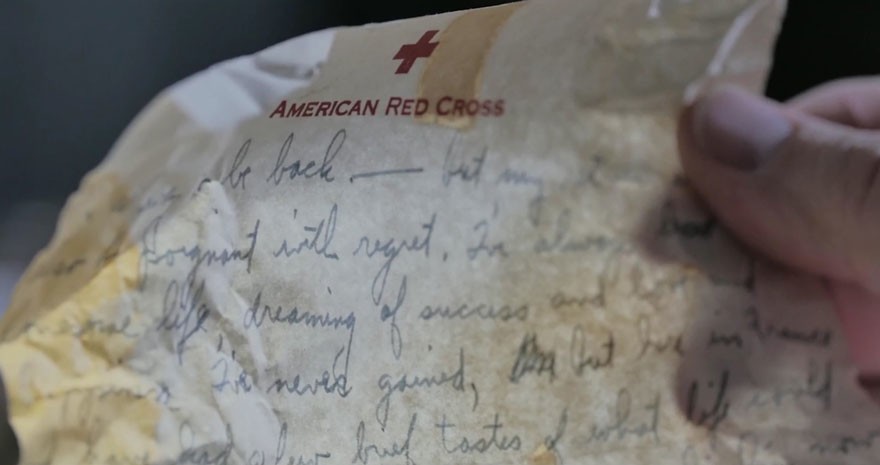 AMERICAN RED CROSS
be back — but my
poignant with regret. I've always had
life, dreaming of success and love and
I've never gained, but here in France
had a few brief tastes of what life could
now